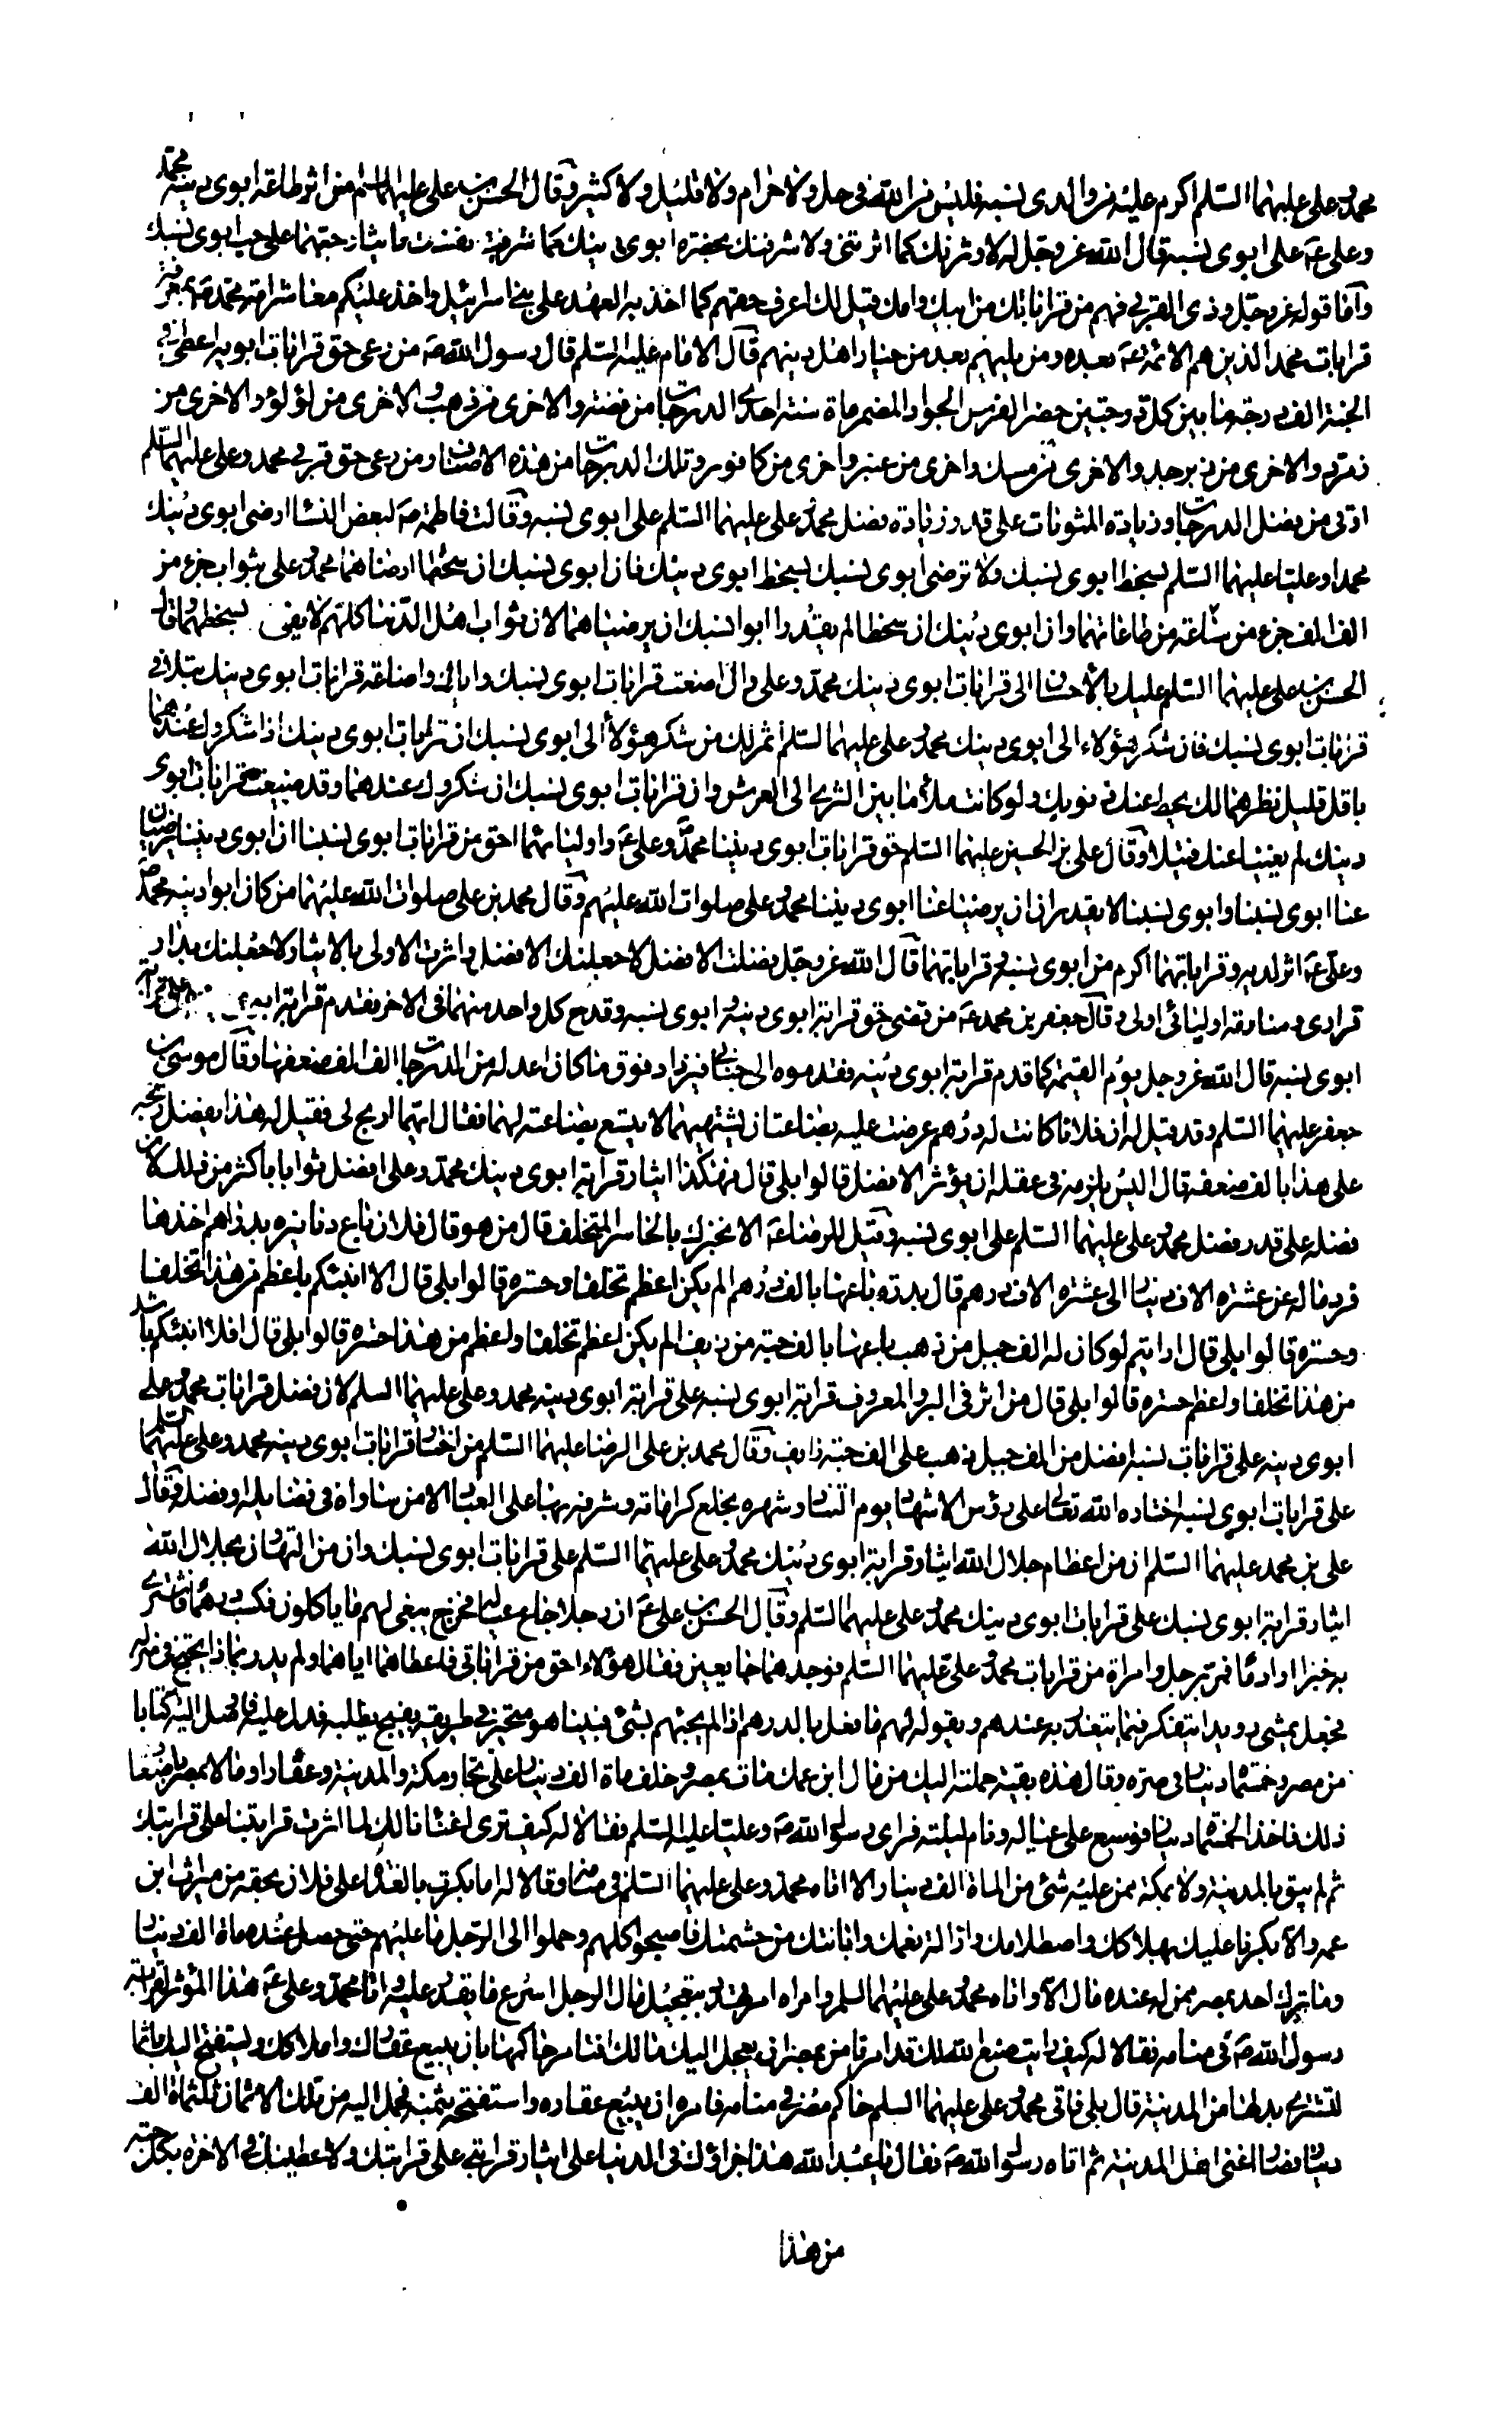 محمد وعلي عليهما السلم اكرم عليه من والدى نسبه فليس من الله في حل ولا حرام ولا قليل ولا كثير وقال الحسن بن علي عليهما السلم من اثر طاعة ابوى دينه محمد
وعلي ع على ابوى نسبه قال الله عز وجل له لاوثرنك كما اثرتني ولاشرفنك بحضرة ابوى دينك كما شرفت نفسك بايثار حبهما على حب ابوى نسبك
واما قوله عز وجل وذي القربى فهم من قراباتك من ابيك وامك قيل لك اعرف حقهم كما اخذ به العهد على بني اسرائيل واخذ عليكم معاشر امة محمد ص بمعرفة
قرابات محمد الذين هم الائمة ع بعده ومن يليهم بعد من خيار اهل دينهم قال الامام عليه السلم قال رسول الله ص من رعى حق قرابات ابويه اعطى في
الجنة الف درجة ما بين كل درجتين حضر الفرس الجواد المضمر ماة سنة احدى الدرجات من فضة والاخرى من ذهب والاخرى من لؤلؤ والاخرى من
زمرد والاخرى من زبرجد والاخرى من مسك واخرى من عنبر واخرى من كافور وتلك الدرجات من هذه الاصناف ومن رعى حق قربى محمد وعلي عليهما السلم
اوتي من فضل الدرجات وزيادة المثوبات على قدر زيادة فضل محمد وعلي عليهما السلم على ابوى نسبه وقالت فاطمة ص لبعض النساء ارضي ابوى دينك
محمدا وعليا عليهما السلم بسخط ابوى نسبك ولا ترضي ابوى نسبك بسخط ابوى دينك فان ابوى نسبك ان سخطا ارضاهما محمد وعلي بثواب جزء من
الف الف جزء من ساعة من طاعاتهما وان ابوى دينك ان سخطا لم يقدر ابوا نسبك ان يرضياهما لان ثواب اهل الدنيا كلهم لا يفي بسخطهما وقال
الحسن بن علي عليهما السلم عليك بالاحسان الى قرابات ابوى دينك محمد وعلي وان اضعت قرابات ابوى نسبك واياك واضاعة قرابات ابوى دينك بتلافي
قرابات ابوى نسبك فان شكر هؤلاء الى ابوى دينك محمد وعلي عليهما السلم اثمر لك من شكر هؤلاء الى ابوى نسبك ان قرابات ابوى دينك اذا شكروك عندهما
باقل قليل نظرهما لك يحط عنك ذنوبك ولو كانت ملأ ما بين الثرى الى العرش وان قرابات ابوى نسبك ان شكروك عندهما وقد ضيعت قرابات ابوى
دينك لم يغنيا عنك فتيلا وقال علي بن الحسين عليهما السلم حق قرابات ابوى ديننا محمد وعلي ع واوليائهما احق من قرابات ابوى نسبنا ان ابوى ديننا يرضيان
عنا ابوى نسبنا وابوى نسبنا لا يقدران ان يرضيا عنا ابوى ديننا محمد وعلي صلوات الله عليهم وقال محمد بن علي صلوات الله عليهما من كان ابوا دينه محمد ص
وعلي ع اثر لديه وقراباتهما اكرم من ابوى نسبه وقراباتهما قال الله عز وجل فضلت الافضل لاجعلنك الافضل واثرت الاولى بالايثار لاجعلنك بدار
قراري ومنادمة اوليائي اولى وقال جعفر بن محمد ع من تضيق حق قرابة ابوى دينه وابوى نسبه وقدح كل واحد منهما في الاخر فقدم قرابة ابوي دينه على قرابة
ابوى نسبه قال الله عز وجل يوم القيمة كما قدم قرابة ابوى دينه فقدموه الى جناني فيزداد فوق ما كان اعد له من الدرجات الف الف ضعفها وقال موسى بن
جعفر عليهما السلم وقد قيل له ان فلانا كانت له درهم عرضت عليه بضاعتان يشتهيهما لا يتسع بضاعته لهما فقال ايتهما اربح لي فقيل له هذا يفضل ربحه
على هذا بالف ضعفه قال اليس يلزمه في عقله ان يؤثر الافضل قالوا بلى قال فهكذا ايثار قرابة ابوى دينك محمد وعلي افضل ثوابا باكثر من ذلك لان
فضله على قدر فضل محمد وعلي عليهما السلم على ابوى نسبه وقيل للرضا ع الا نخبرك بالخاسر المتخلف قال من هو قال فلان باع دنانيره بدراهم اخذها
فرد ماله عن عشرة الاف دينار الى عشرة الاف درهم قال بدرة باعها بالف درهم الم يكن اعظم تخلفا وحسرة قالوا بلى قال الا انبئكم باعظم من هذا تخلفا
وحسرة قالوا بلى قال ارايتم لو كان له الف جبل من ذهب باعها بالف حبة من زيف الم يكن اعظم تخلفا واعظم من هذا حسرة قالوا بلى قال افلا انبئكم باشد
من هذا تخلفا واعظم حسرة قالوا بلى قال من اثر في البر والمعروف قرابة ابوى نسبه على قرابة ابوى دينه محمد وعلي عليهما السلم لان فضل قرابات محمد وعلي
ابوى دينه على قرابات نسبه افضل من الف جبل ذهب على الف حبة زايف وقال محمد بن علي الرضا عليهما السلم من اختار قرابات ابوى دينه محمد وعلي عليهما السلم
على قرابات ابوى نسبه اختاره الله تعالى على رؤس الاشهاد يوم التناد وشهره بخلع كراماته وشرفه بها على العباد الا من ساواه في فضايله او فضله وقال
علي بن محمد عليهما السلم ان من اعظام جلال الله ايثار قرابة ابوى دينك محمد وعلي عليهما السلم على قرابات ابوى نسبك وان من التهاون بجلال الله
ايثار قرابة ابوى نسبك على قرابات ابوى دينك محمد وعلي عليهما السلم وقال الحسن بن علي ع ان رجلا جاع عياله فخرج يبغي لهم ما ياكلون فكسب درهما فاشترى
به خبزا واداما فمر برجل وامراة من قرابات محمد وعلي عليهما السلم فوجدهما جايعين فقال هؤلاء احق من قراباتي فاعطاهما اياهما ولم يدر بماذا يحتج في منزله
فجعل يمشي رويدا يتفكر فيما يتعذر به عندهم ويقوله لهم ما فعل بالدرهم اذا لم يجئهم بشئ فبينا هو متحير في طريقه بفيج يطلبه فدل عليه فاوصل اليه كتابا
من مصر وخمسماة دينار في صرة وقال هذه بقية حملته اليك من مال ابن عمك مات بمصر وخلف ماة الف دينار على تجار مكة والمدينة وعقارا ومالا بمصر باضعاف
ذلك فاخذ الخمسماة دينار فوسع على عياله ونام ليلته فراى رسول الله ص وعليا عليه السلم فقالا له كيف ترى اغناءنا لك لما اثرت قرابتنا على قرابتك
ثم لم يبق بالمدينة ولا بمكة ممن عليه شئ من الماة الف دينار الا اتاه محمد وعلي عليهما السلم في منامه وقالا له اما بكرت بالغداة على فلان بحقه من ميراث ابن
عمه والا بكرنا عليك بهلاكك واصطلامك وازالة نعمك وابانتك من حشمتك فاصبحوا كلهم وحملوا الى الرجل ما عليهم حتى حصل عنده ماة الف دينار
وما ترك احد بمصر ممن له عنده مال الا واتاه محمد وعلي عليهما السلم وامراه امر تهدد بتعجيل مال الرجل اسرع ما يقدر عليه واتى محمد وعلي ع هذا المؤثر لقرابة
رسول الله ص في منامه فقالا له كيف رايت صنع الله لك قد امرنا من بمصر ان يعجل اليك مالك افنامر حاكمها بان يبيع عقارك واملاكك ويستفتج اليك باثمانها
لتشتري بدلها من المدينة قال بلى فاتى محمد وعلي عليهما السلم حاكم مصر في منامه فامره ان يبيع عقاره واستفتجه بثمنه فحمل اليه من تلك الاثمان ثلثماة الف
دينار فصار اغنى اهل المدينة ثم اتاه رسول الله ص فقال يا عبد الله هذا جزاؤك في الدنيا على ايثار قرابتي على قرابتك ولاعطينك في الاخرة بكل حبة
من هذا